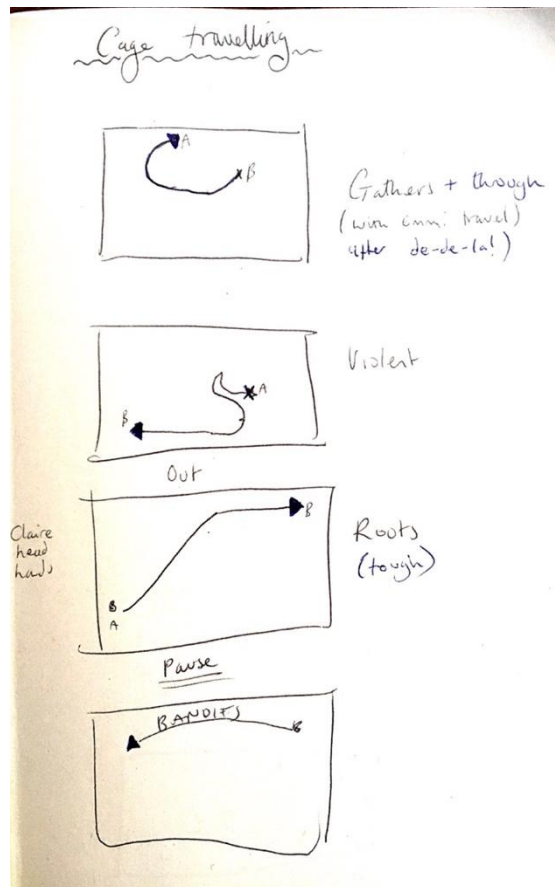 Cage travelling
A
B
Gathers + through
(with travel)
after de-de-la!)
A
B
Violent
Out
Claire
head
B
Roots
(tough)
B
A
Pause
BANDITS
B